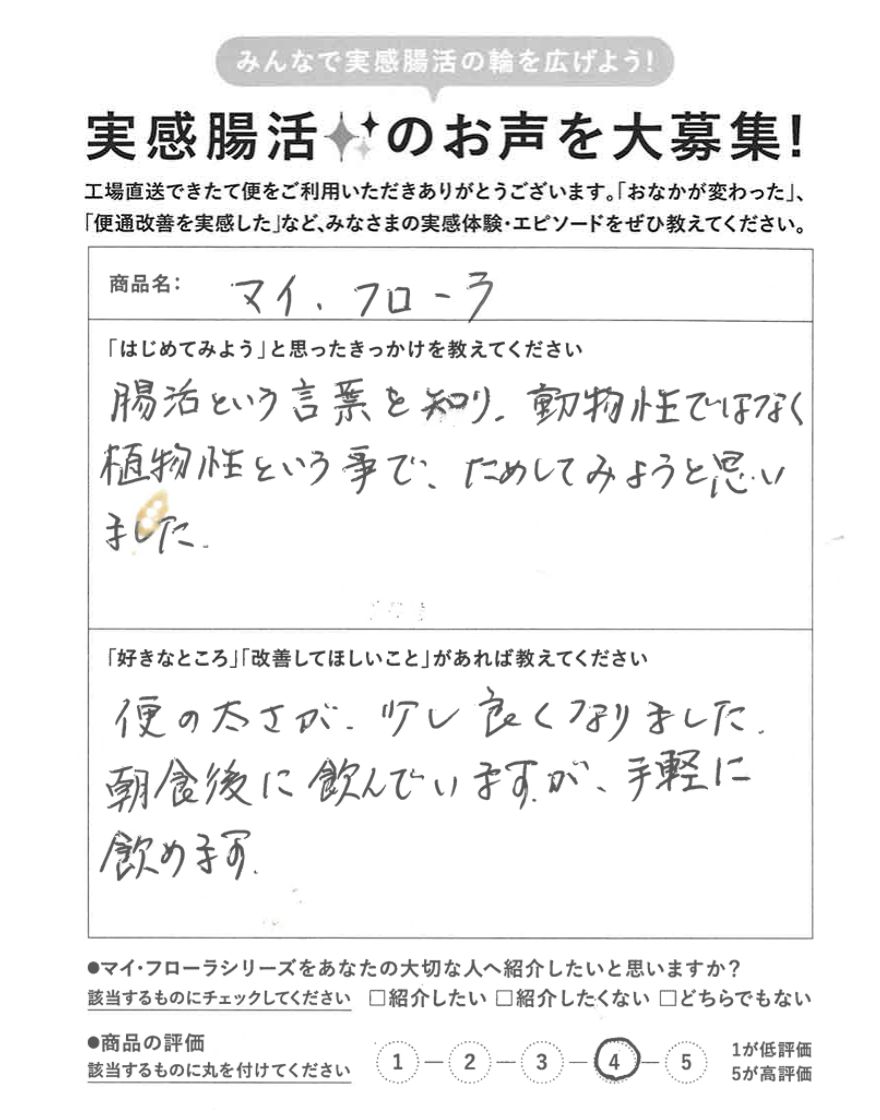 みんなで実感腸活の輪を広げよう!
実感腸活のお声を大募集!
工場直送できたて便をご利用いただきありがとうございます。「おなかが変わった」、
「便通改善を実感した」など、みなさまの実感体験・エピソードをぜひ教えてください。
商品名: マイ・フローラ
「はじめてみよう」と思ったきっかけを教えてください
腸活という言葉を知り、動物性ではなく
植物性という事で、ためしてみようと思い
ました。
「好きなところ」「改善してほしいこと」があれば教えてください
便の太さが、少し良くなりました。
朝食後に飲んでいますが、手軽に
飲めます。
●マイ・フローラシリーズをあなたの大切な人へ紹介したいと思いますか?
該当するものにチェックしてください □紹介したい □紹介したくない □どちらでもない
●商品の評価
該当するものに丸を付けてください 1 — 2 — 3 — 4 — 5
1が低評価
5が高評価